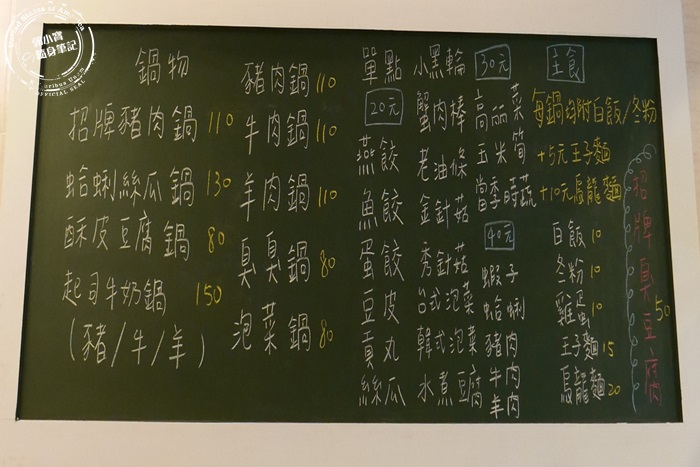 鍋物
招牌豬肉鍋 110
蛤蜊絲瓜鍋 130
酥皮豆腐鍋 80
起司牛奶鍋 150
(豬/牛/羊)
豬肉鍋 110
牛肉鍋 110
羊肉鍋 110
臭臭鍋 80
泡菜鍋 80
單點
20元
燕餃
魚餃
蛋餃
豆皮
貢丸
絲瓜
小黑輪
蟹肉棒
老油條
金針菇
秀針菇
台式泡菜
韓式泡菜
水煮豆腐
30元
高麗菜
玉米筍
當季時蔬
40元
蝦子
蛤蜊
豬肉
牛肉
羊肉
主食
每鍋均附白飯/冬粉
+5元王子麵
+10元烏龍麵
白飯 10
冬粉 10
雞蛋 10
王子麵 15
烏龍麵 20
招牌臭豆腐 50
小寶
隨身筆記
OFFICIAL SEAL